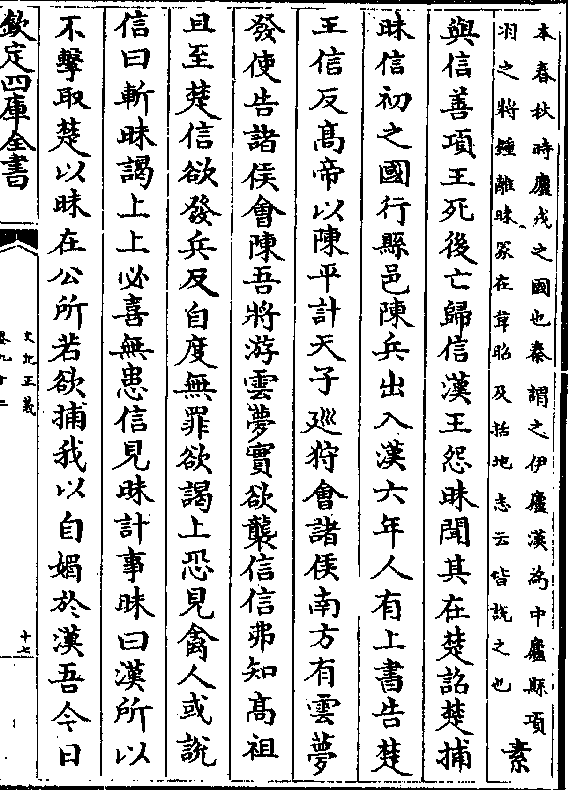 本春秋時廬戎之國也秦謂之伊廬漢為中廬縣項
羽之將鍾離昧冢在韋昭及括地志云皆說之也
素
與信善項王死後亡歸信漢王怨昧聞其在楚詔楚捕
昧信初之國行縣邑陳兵出入漢六年人有上書告楚
王信反高帝以陳平計天子廵狩會諸侯南方有雲夢
發使告諸侯會陳吾將游雲夢實欲襲信信弗知高祖
且至楚信欲發兵反自度無罪欲謁上恐見禽人或說
信曰斬昧謁上上必喜無患信見昧計事昧曰漢所以
不擊取楚以昧在公所若欲捕我以自媚於漢吾今日
欽定四庫全書
史記正義
卷九十二
十七